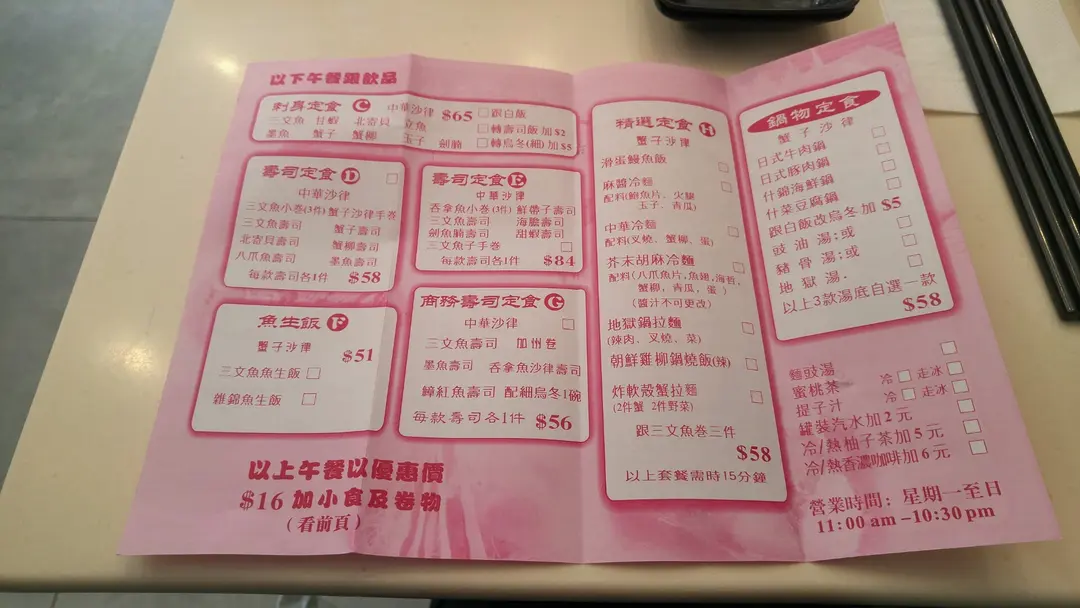 以下午餐跟飲品
刺身定食 C 中華沙律 $65
三文魚 甘蝦 北寄貝 立魚
墨魚 蟹子 蟹柳 玉子 劍腩
跟白飯
轉壽司飯加$2
轉烏冬(細)加$5
壽司定食 D
中華沙律
三文魚小卷(3件) 蟹子沙律手卷
三文魚壽司 蟹子壽司
北寄貝壽司 蟹柳壽司
八爪魚壽司 墨魚壽司
每款壽司各1件 $58
壽司定食 E
中華沙律
吞拿魚小卷(3件) 鮮帶子壽司
三文魚壽司 海膽壽司
劍魚腩壽司 甜蝦壽司
三文魚子手卷
每款壽司各1件 $84
魚生飯 F
蟹子沙律
$51
三文魚魚生飯
雜錦魚生飯
商務壽司定食 G
中華沙律
三文魚壽司 加州卷
墨魚壽司 吞拿魚沙律壽司
鰽紅魚壽司 配細烏冬1碗
每款壽司各1件 $56
以上午餐以優惠價
$16 加小食及卷物
(看前頁)
精選定食 H
蟹子沙律
滑蛋鰻魚飯
麻醬冷麵
配料(鮑魚片，火腿
玉子、青瓜)
中華冷麵
配料(叉燒、蟹柳、蛋)
芥末胡麻冷麵
配料(八爪魚片,魚翅,海哲,
蟹柳，青瓜，蛋)
(醬汁不可更改)
地獄鍋拉麵
(辣肉、叉燒、菜)
朝鮮雞柳鍋燒飯(辣)
炸軟殼蟹拉麵
(2件蟹 2件野菜)
跟三文魚卷三件
$58
以上套餐需時15分鐘
鍋物定食
蟹子沙律
日式牛肉鍋
日式豚肉鍋
什錦海鮮鍋
什菜豆腐鍋
跟白飯改烏冬加 $5
豉油湯;或
豬骨湯;或
地獄湯.
以上3款湯底自選一款
$58
麵豉湯
蜜桃茶 冷 走冰
提子汁 冷 走冰
罐裝汽水加2元
冷/熱柚子茶加5元
冷/熱香濃咖啡加6元
營業時間：星期一至日
11:00 am -10:30 pm